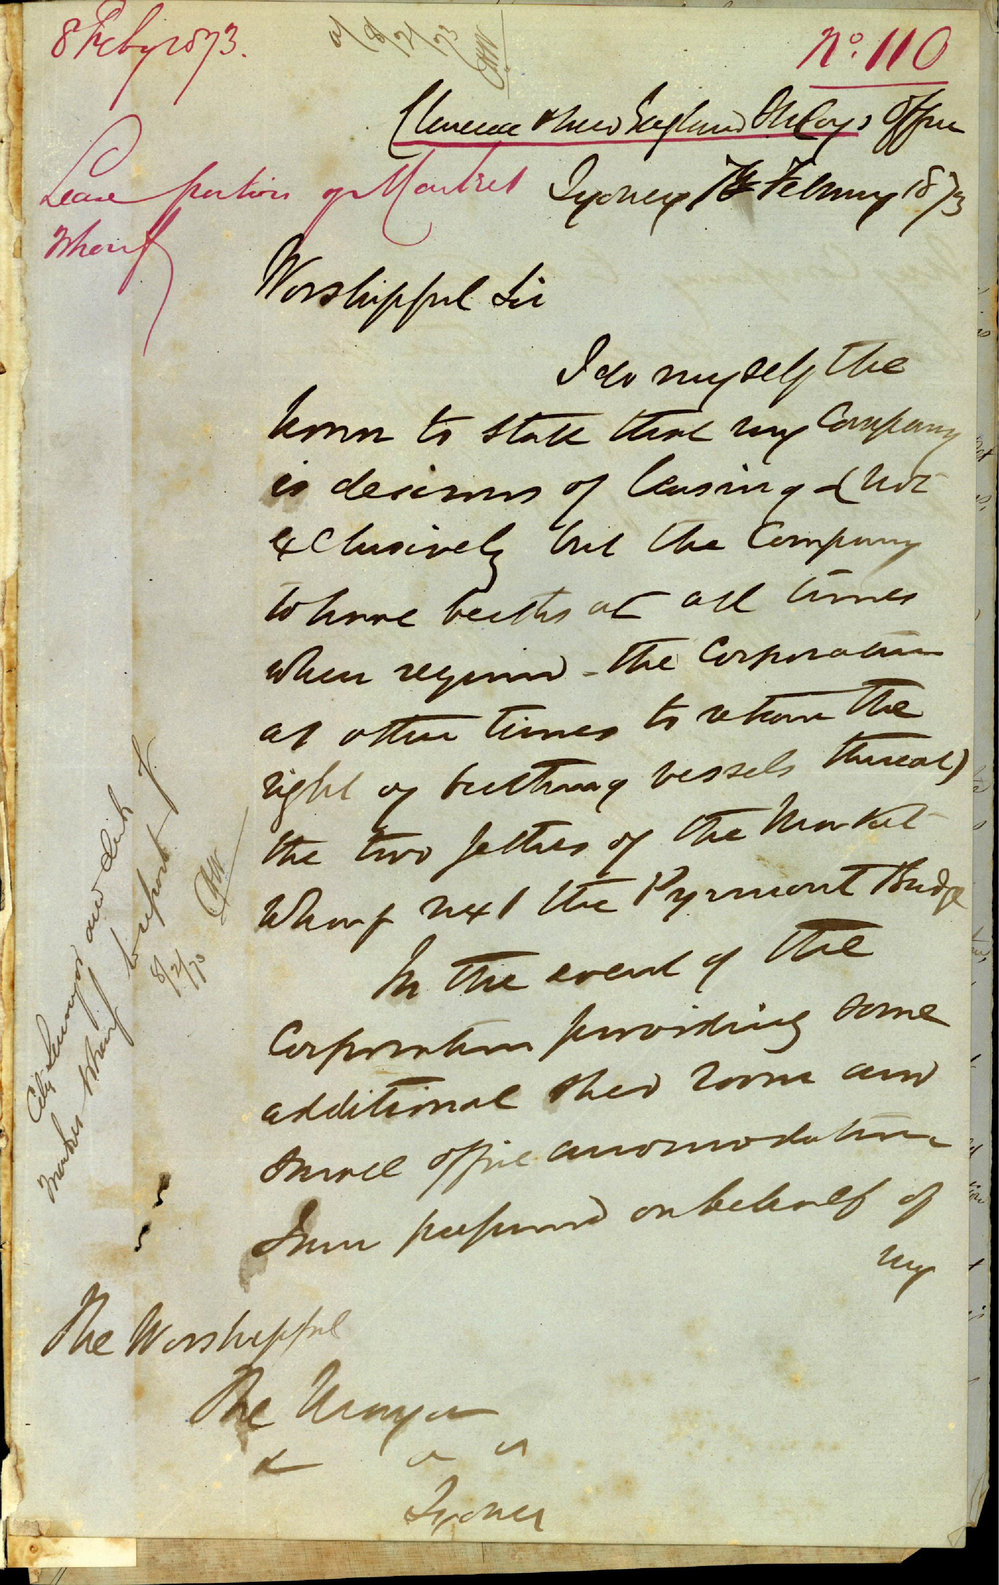 8 Feby 1873.
No. 110
8/2/73
Clarence & New England SN Coys Office
Lease portion of Market
Wharf
Sydney 7th February 1873
Worshipful Sir
I do myself the
honor to state that my Company
is desirous of leasing - (not
exclusively but the Company
to have berths at all times
when required - the Corporation
at other times to retain the
right of berthing vessels thereat)
the two Jetties of the Market
Wharf next the Pyrmont Bridge
In the event of the
Corporation providing some
additional shed room and
small office accomodation
I am prepared on behalf of
my
The Worshipful
The Mayor
& " "
Sydney
City Surveyor and
Market Wharf to report
8/2/73